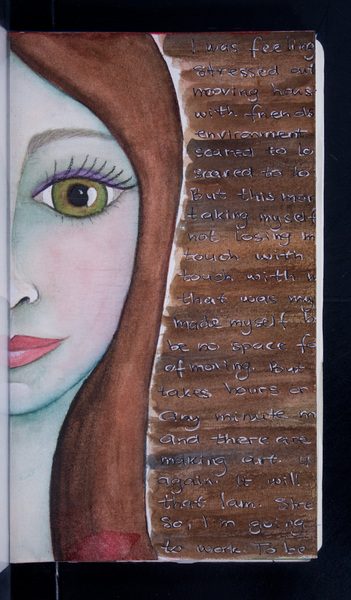 I was feeling
stressed out
moving hous
with friends
environment
scared to lo
scared to lo
But this mor
taking myself
not losing m
touch with
touch with
that was my
made myself
be no space fo
of moving. But
takes hours or
any minute m
and there are
making art is
again. It will
that I am. She
so, I'm going
to work. To be